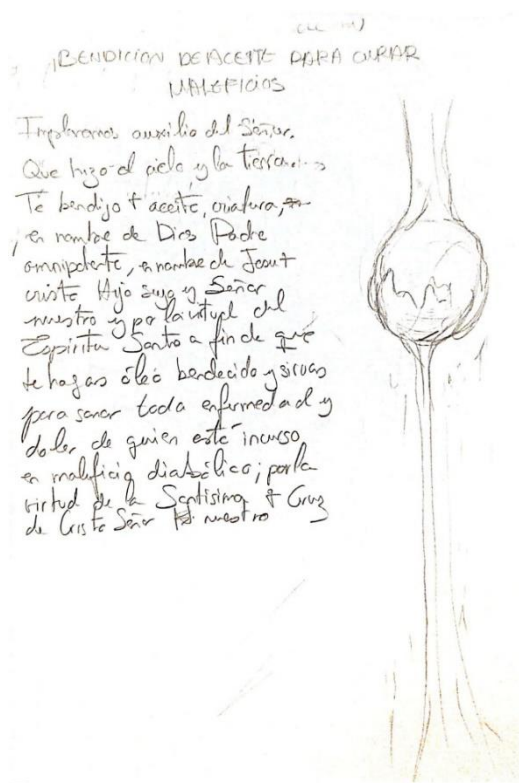 ¡BENDICION DE ACEITE PARA CURAR
MALEFICIOS
Imploramos auxilio del Señor.
Que hizo el cielo y la tierra....
Te bendijo + aceite, criatura,
, en nombre de Dios Padre
omnipotente, en nombre de Jesu+
cristo Hijo suyo y Señor
nuestro y por la virtud del
Espíritu Santo a fin de que
te hagas óleo bendecido y sirvas
para sanar toda enfermedad y
dolor de quien esté incurso
en maleficio diabólico; por la
virtud de la Santísima + Cruz
de Cristo Señor nuestro